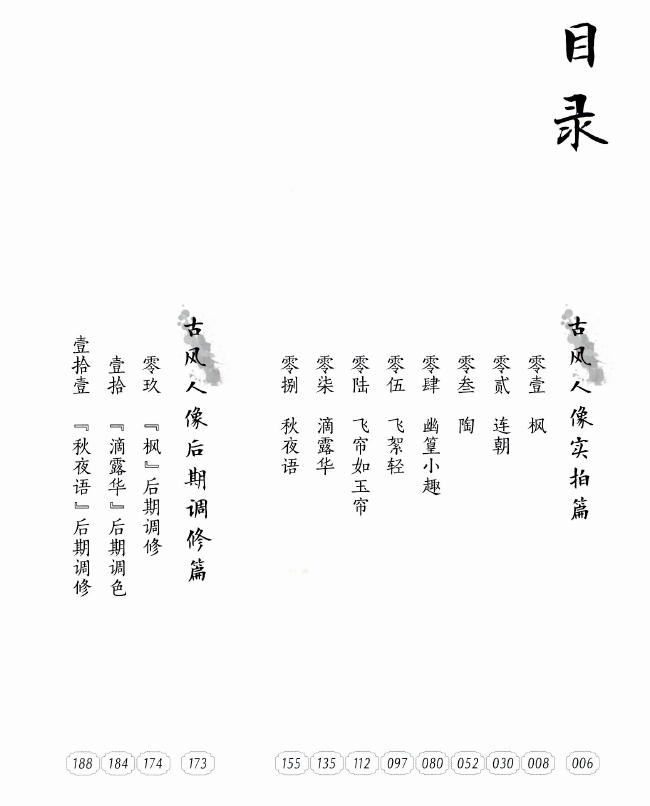 目录
古风人像实拍篇 006
零壹 枫 008
零贰 连朝 030
零叁 陶 052
零肆 幽篁小趣 080
零伍 飞絮轻 097
零陆 飞帘如玉帘 112
零柒 滴露华 135
零捌 秋夜语 155
古风人像后期调修篇 173
零玖 『枫』后期调修 174
壹拾 『滴露华』后期调色 184
壹拾壹 『秋夜语』后期调修 188